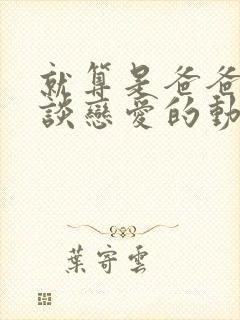 就算是爸爸
談戀愛的動
葉寄雲